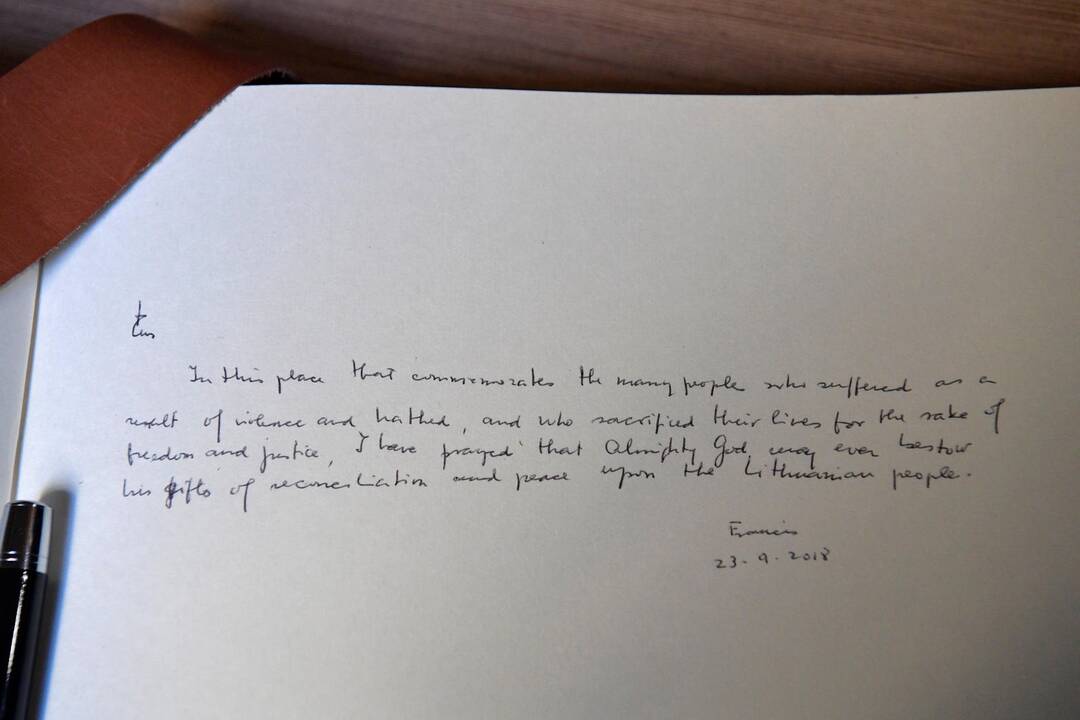 In this place that commemorates the many people who suffered as a
result of violence and hatred, and who sacrified their lives for the sake of
freedom and justice, I have prayed that Almighty God may ever bestow
his gifts of reconciliation and peace upon the Lithuanian people.
Francis
23.9.2018